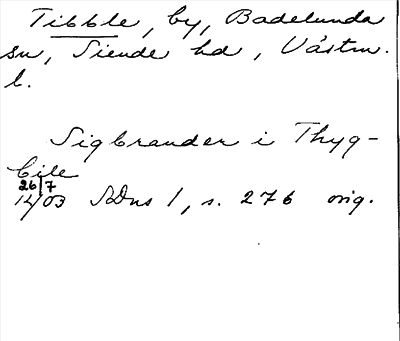 Tibble, by, Badelunda
sn, Siende hd, Västm.
l.
Sigbrander i Thyg-
bile
26/7
1403 SDns 1, s. 276 orig.